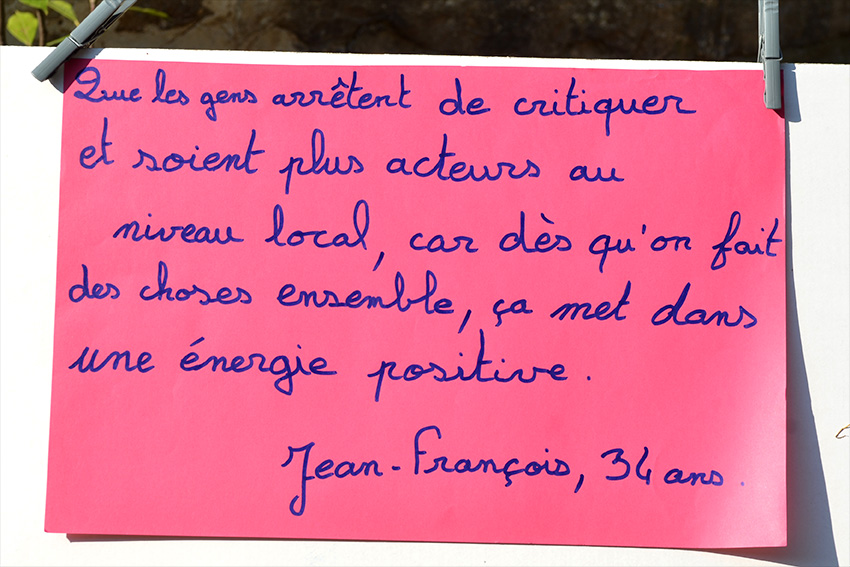 Que les gens arrêtent de critiquer
et soient plus acteurs au
niveau local, car dès qu'on fait
des choses ensemble, ça met dans
une énergie positive.
Jean-François, 34 ans.